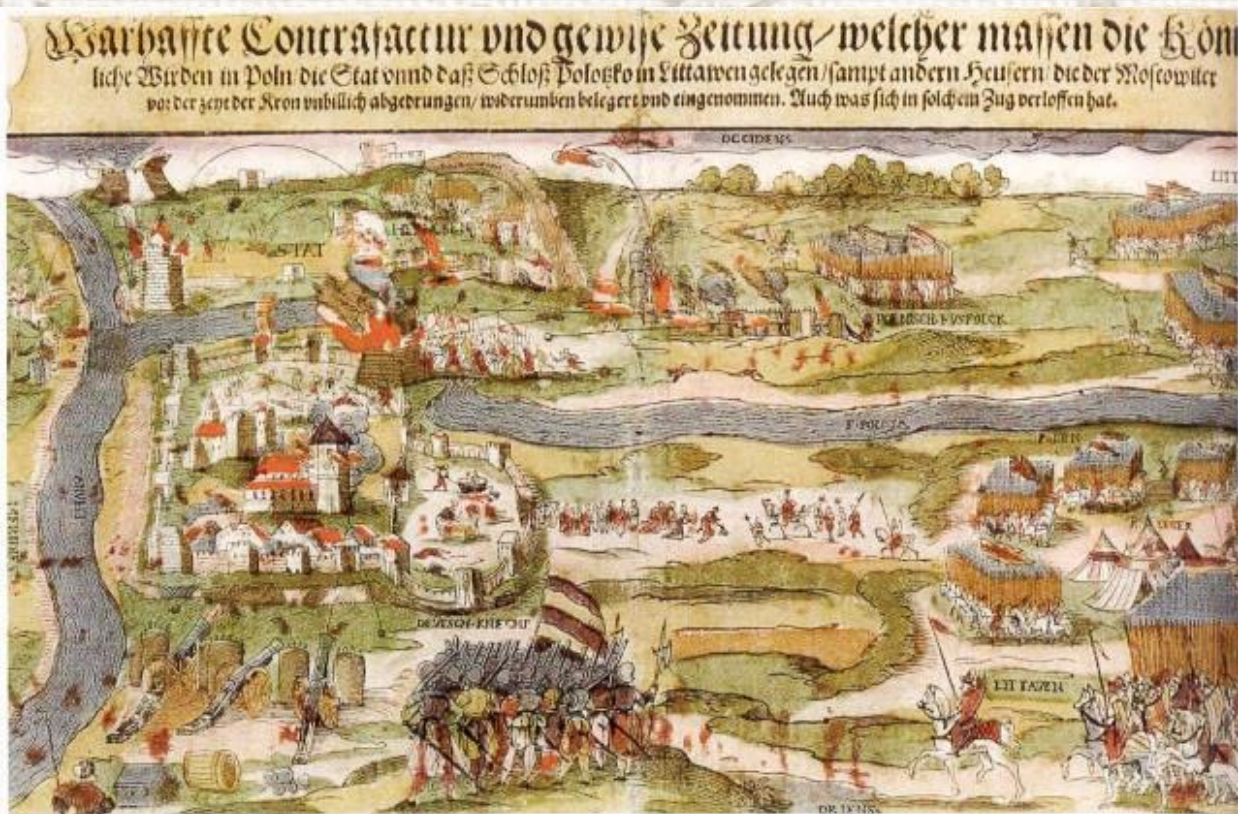 Warhaffte Contrafactur vnd gewise Zeitung/welcher massen die Kön
liche Wirden in Poln/die Stat vnnd daß Schloß Polotzko in Littawen gelegen/sampt andern Heusern/die der Moscowiter
vor der zeyt der Kron vnbillich abgedrungen/widerumben belegert vnd eingenommen. Auch was sich in solchem Zug verloffen hat.
OCCIDENS
LITT
STAT
F. POLOTA
LITTAVEN
ORIENS